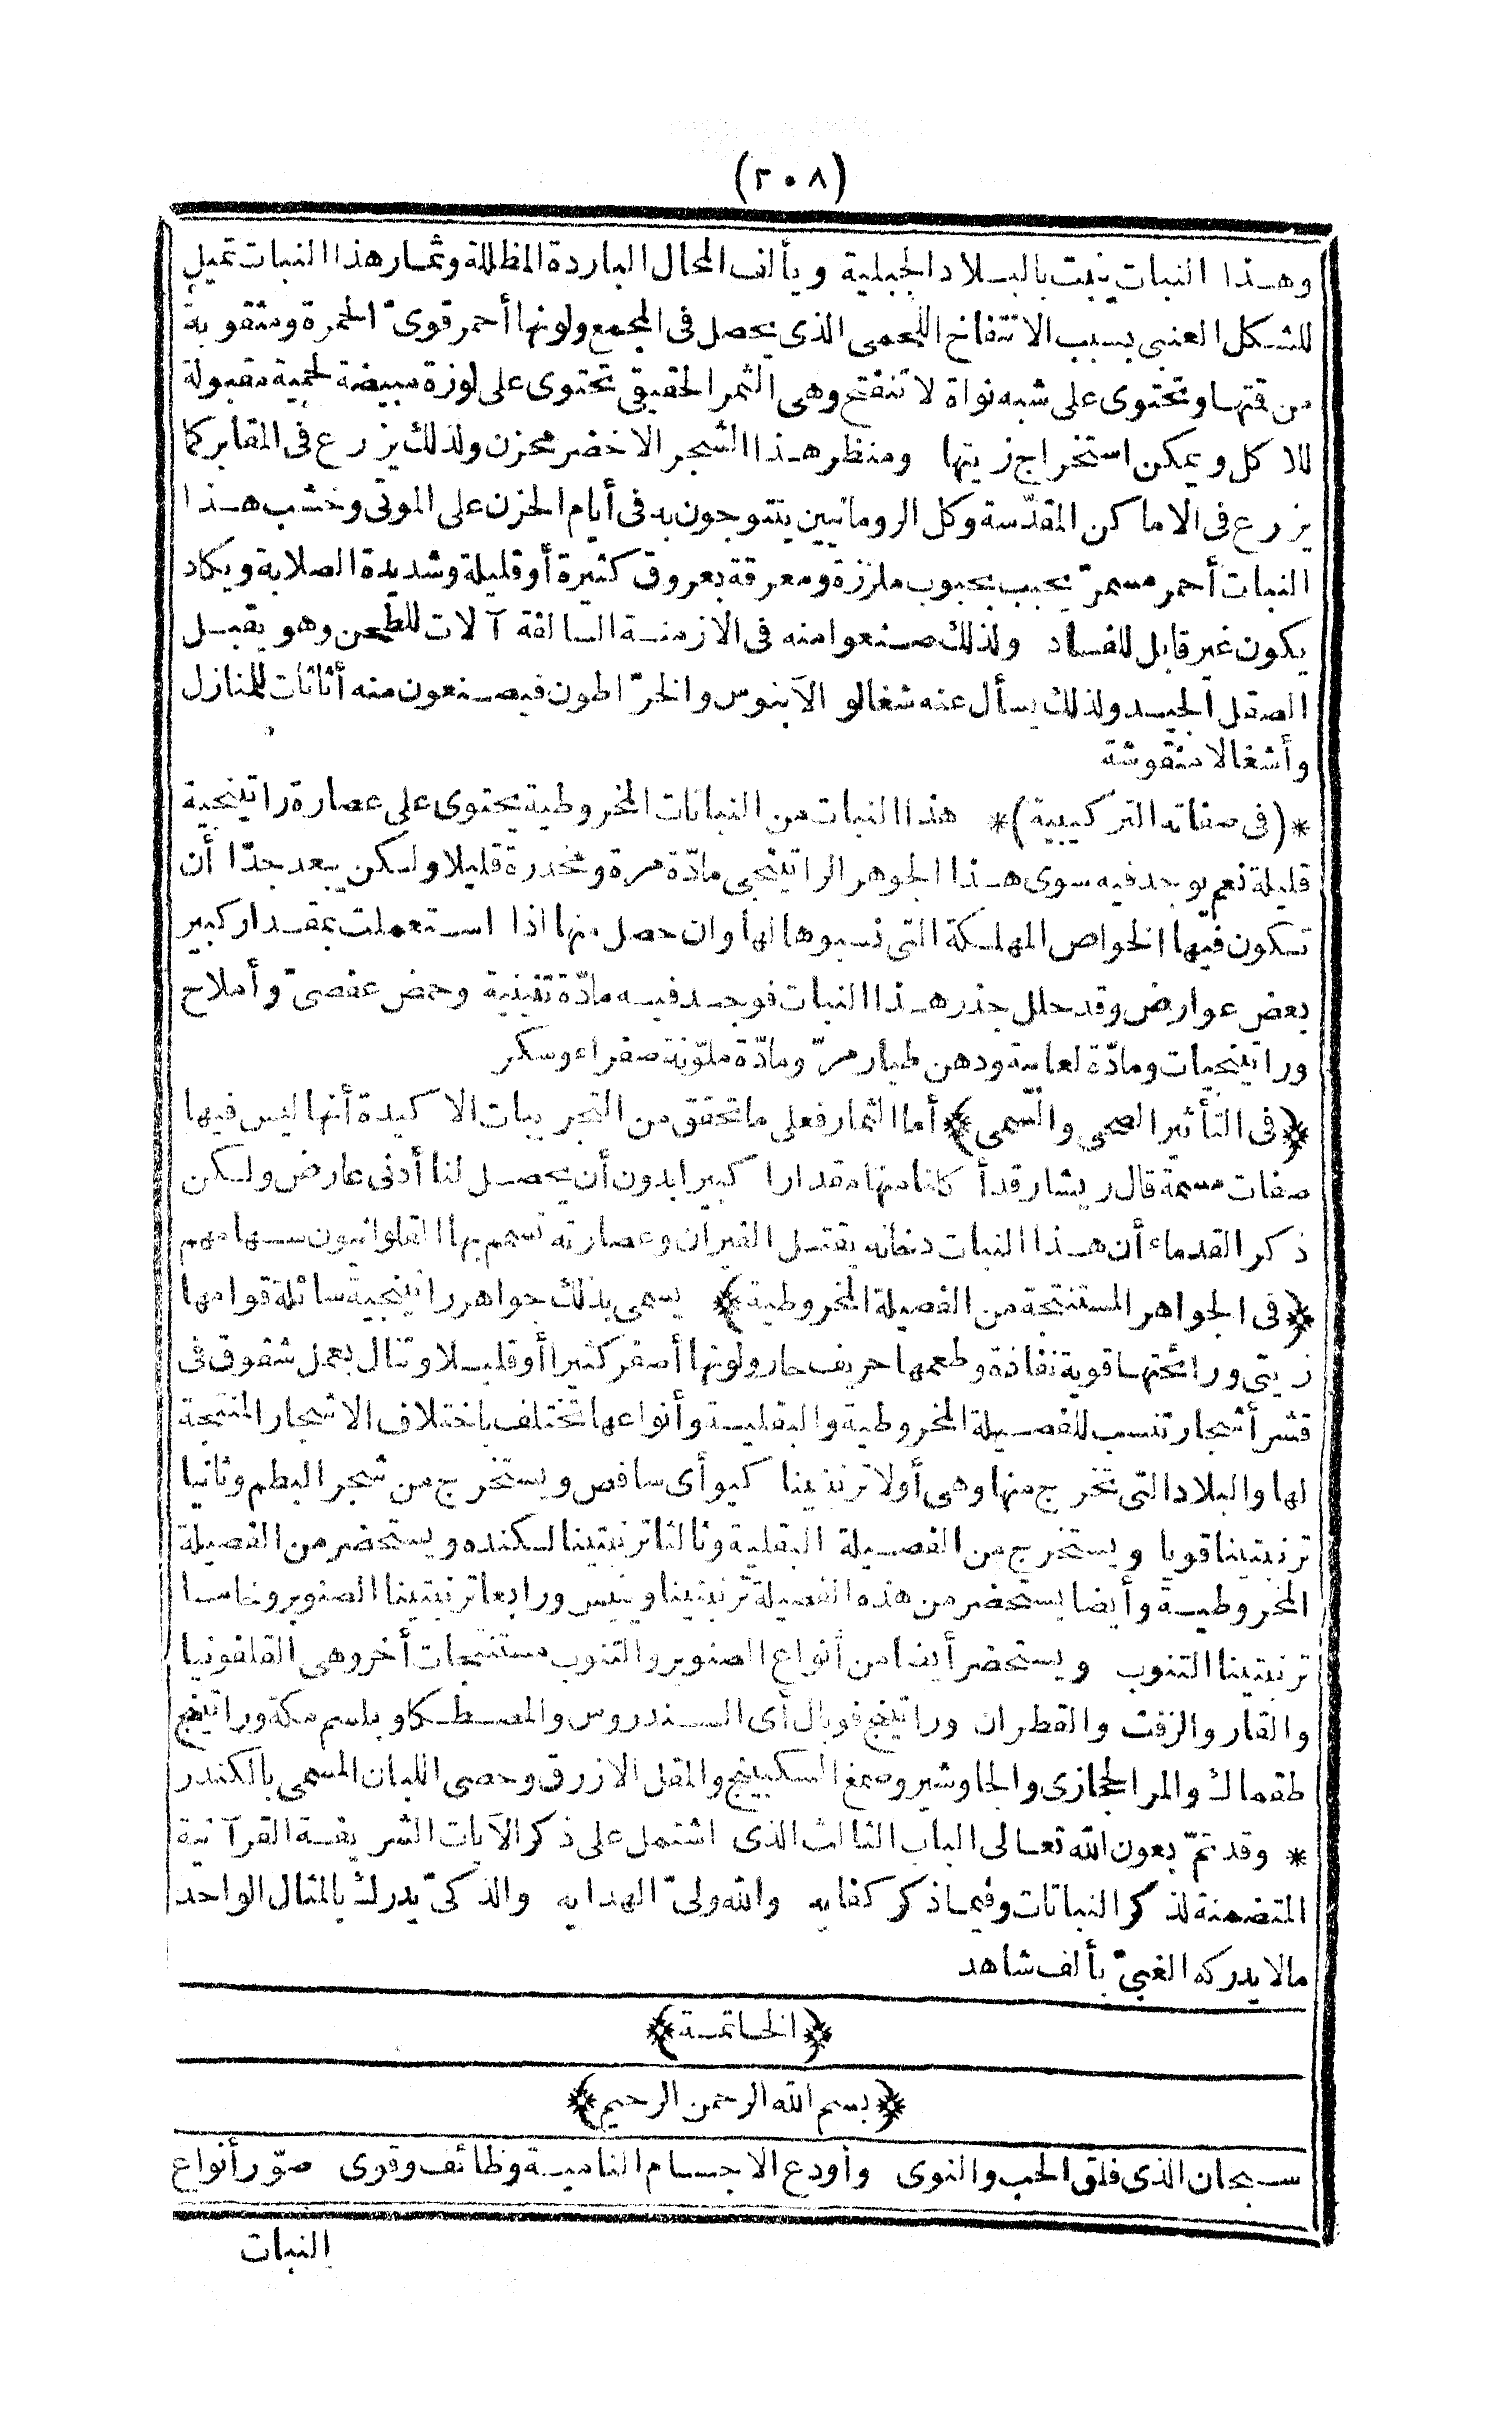 (٢٠٨)
وهذا النبات ينبت بالبلاد الجبلية ويألف المحال الباردة المظللة وثمار هذا النبات تميل
للشكل العنبي بسبب الانتفاخ اللحمى الذى يحصل فى المجمع ولونها أحمر قوىّ الحمرة ومثقوبة
من قمتها وتحتوى على شبه نواة لا تنفتح وهى الثمر الحقيقى تحتوى على لوزة مبيضة لحمية مقبولة
للاكل ويمكن استخراج زيتها ومنظر هذا الشجر الاخضر محزن ولذلك يزرع فى المقابر كما
يزرع فى الاماكن المقدّسة وكل الرومانيين يتتوجون به فى أيام الحزن على الموتى وخشب هذا
النبات أحمر مسمرّ يحبب بحبوب ملززة ومعرقة بعروق كثيرة أو قليلة وشديدة الصلابة ويكاد
يكون غير قابل للفساد ولذلك صنعوا منه فى الازمنة السالفة آلات للطحن وهو يقبل
الصقل الجيد ولذلك يسأل عنه شغالو الآبنوس والخرّاطون فيصنعون منه أثاثات للمنازل
وأشغالا منقوشة
*(فى صفاته التركيبية)* هذا النبات من النباتات المخروطية يحتوى على عصارة راتينجية
قليلة نعم يوجد فيه سوى هذا الجوهر الراتينجى مادّة مرة ومخدرة قليلا ولكن يبعد جدّا أن
تكون فيها الخواص المهلكة التى نسبوها لها وان حصل منها اذا استعملت بمقدار كبير
بعض عوارض وقد حلل جذر هذا النبات فوجد فيه مادّة تنينية وحمض عفصىّ وأملاح
وراتينجيات ومادّة لعابية ودهن طيار مرّ ومادّة ملوّنة صفراء وسكر
﴿فى التأثير الصحى والسّمى﴾ أما الثمار فعلى ما تحقق من التجربيات الاكيدة أنها ليس فيها
صفات مسمة قال ريشار قد أكلنا منها مقدارا كبيرا بدون أن يحصل لنا أدنى عارض ولكن
ذكر القدماء أن هذا النبات دخانه يقتل الفيران وعصارته تسمم بها القلوانيون سهامهم
﴿فى الجواهر المستنتجة من الفصيلة المخروطية﴾ يسمى بذلك جواهر راتينجية سائلة قوامها
زيتى ورائحتها قوية نفاذة وطعمها حريف حار ولونها أصفر كثيرا أو قليلا وتنال بعمل شقوق فى
قشر أشجار تنسب للفصيلة المخروطية والبقلية وأنواعها تختلف باختلاف الاشجار المنتجة
لها والبلاد التى تخرج منها وهى أولا ترنتينا كيو أى ساقص ويستخرج من شجر البطم وثانيا
ترنبتينا قوبا ويستخرج من الفصيلة البقلية وثالثا ترنبتينا لسكنده ويستحضر من الفصيلة
المخروطية وأيضا يستحضر من هذه الفصيلة ترنبتينا ونيس ورابعا ترنبتينا الصنوبر وخامسا
ترنبتينا التنوب ويستحضر أيضا من أنواع الصنوبر والتنوب مستنتجات أخر وهى القلفونيا
والقار والزفت والقطران وراتينج قوبال أى السندروس والمصطكا وبلسم مكة وراتينج
طقماك والمر الحجازى والجاوشير وصمغ السكبينج والمقل الازرق وحصى اللبان المسمى بالكندر
* وقد تمّ بعون الله تعالى الباب الثالث الذى اشتمل على ذكر الآيات الشريفة القرآنية
المتضمنة لذكر النباتات وفيما ذكر كفايه والله ولىّ الهدايه والذكىّ يدرك بالمثال الواحد
مالا يدركه الغبىّ بألف شاهد
﴿الخاتمة﴾
﴿بسم الله الرحمن الرحيم﴾
سبحان الذى فلق الحب والنوى وأودع الاجسام النامية وظائف وقوى صوّر أنواع
النبات